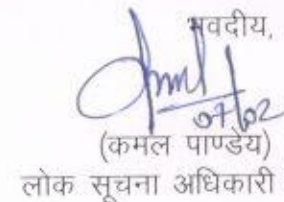 भवदीय,
07/02
(कमल पाण्डेय)
लोक सूचना अधिकारी